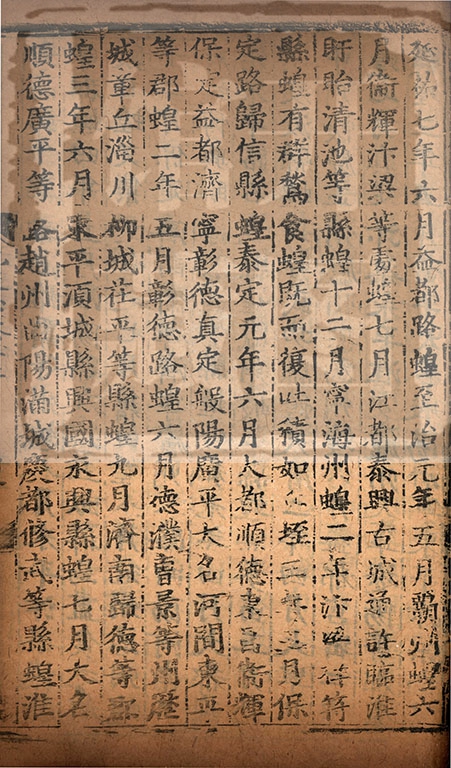 延祐七年六月益都路蝗至治元年五月霸州蝗六
月衞輝汴梁等處蝗七月江都泰興古城通許臨淮
盱眙清池等縣蝗十二月寧海州蝗二年汴梁祥符
縣蝗有群鶖食蝗既而復吐積如丘垤三年五月保
定路歸信縣蝗泰定元年六月大都順德東昌衞輝
保定益都濟寧彰德真定般陽廣平大名河間東平
等郡蝗二年五月彰德路蝗六月德濮曹景等州歷
城章丘淄川柳城茌平等縣蝗九月濟南歸德等郡
蝗三年六月東平須城縣興國永興縣蝗七月大名
順德廣平等路趙州曲陽滿城慶都修武等縣蝗淮